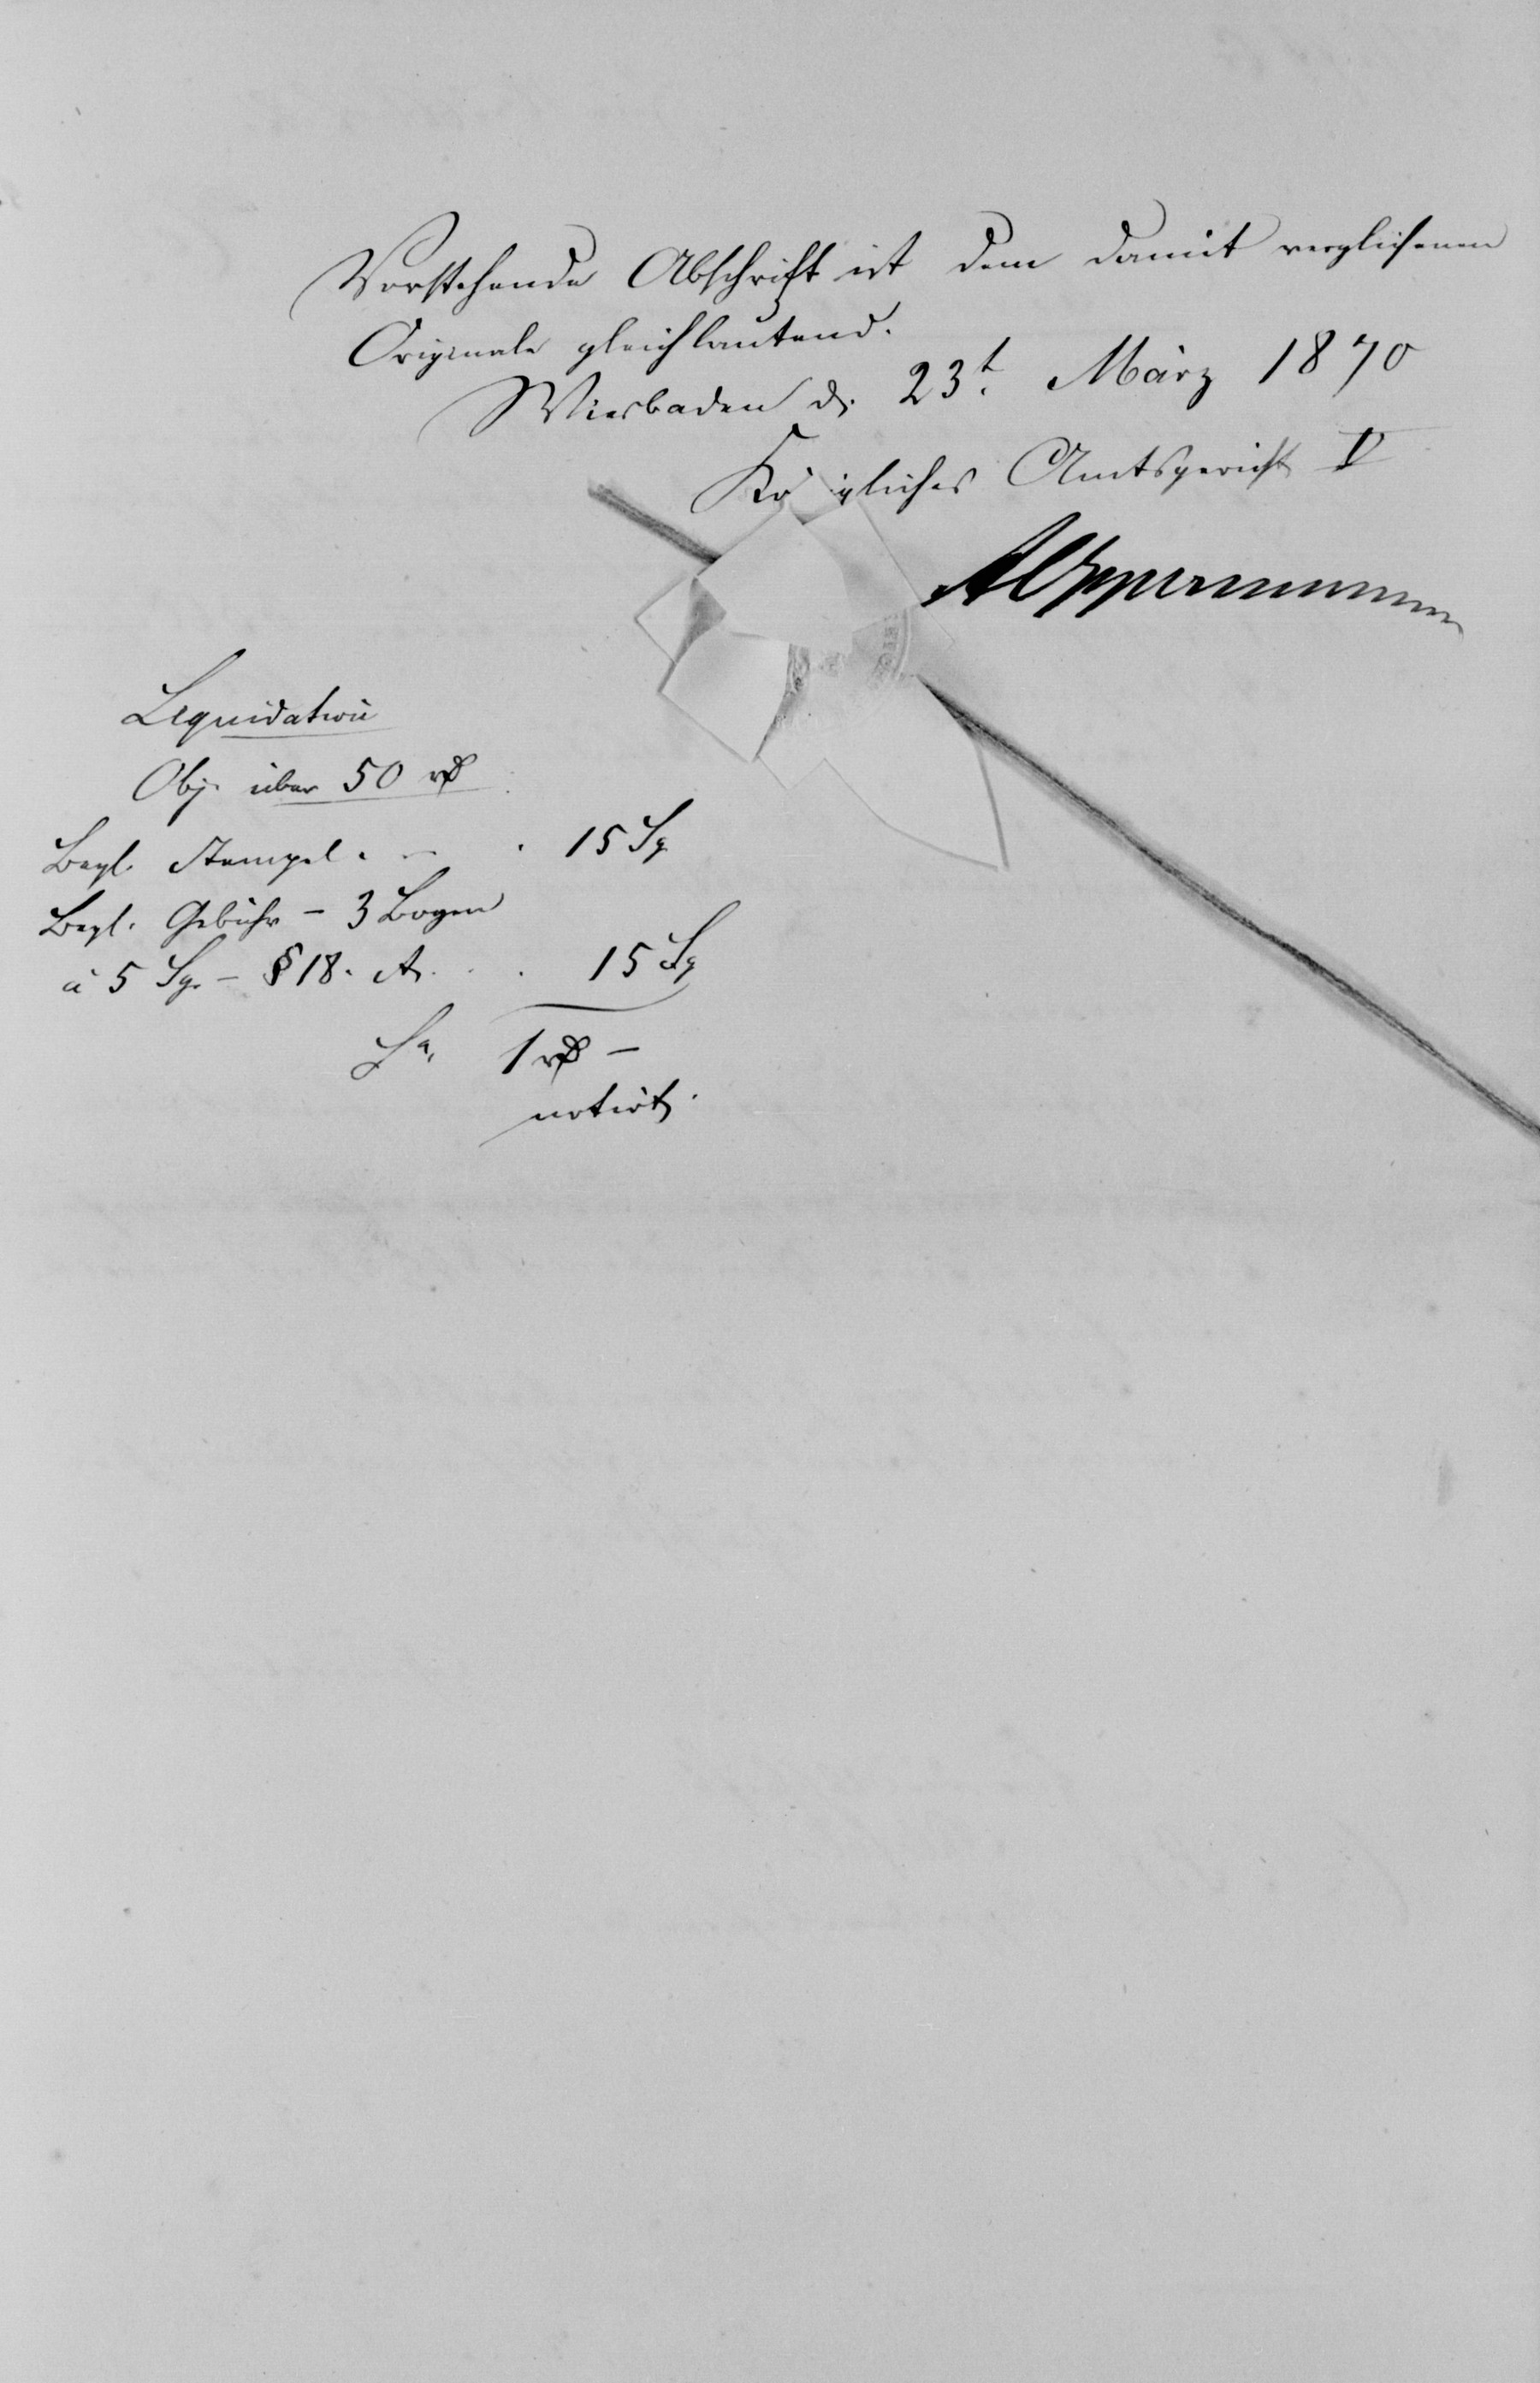 Vorstehende Abschrift ist dem damit verglichenen
Originale gleichlautend.
Wiesbaden d. 23t. März 1870
Kö igliches Amtsgericht V
Liquidation
Obj. über 50 rß
Begl. Stempel . - . 15 Sg
Begl. Gebühr - 3 Bogen
à 5 Sg. - § 18. A. . . 15 Sg
Sa. 1 rß -
notirt.